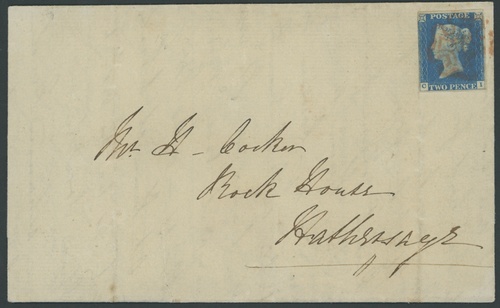 POSTAGE
C TWO PENCE I
Mr. H - Cocker
Rock House
Hathersage